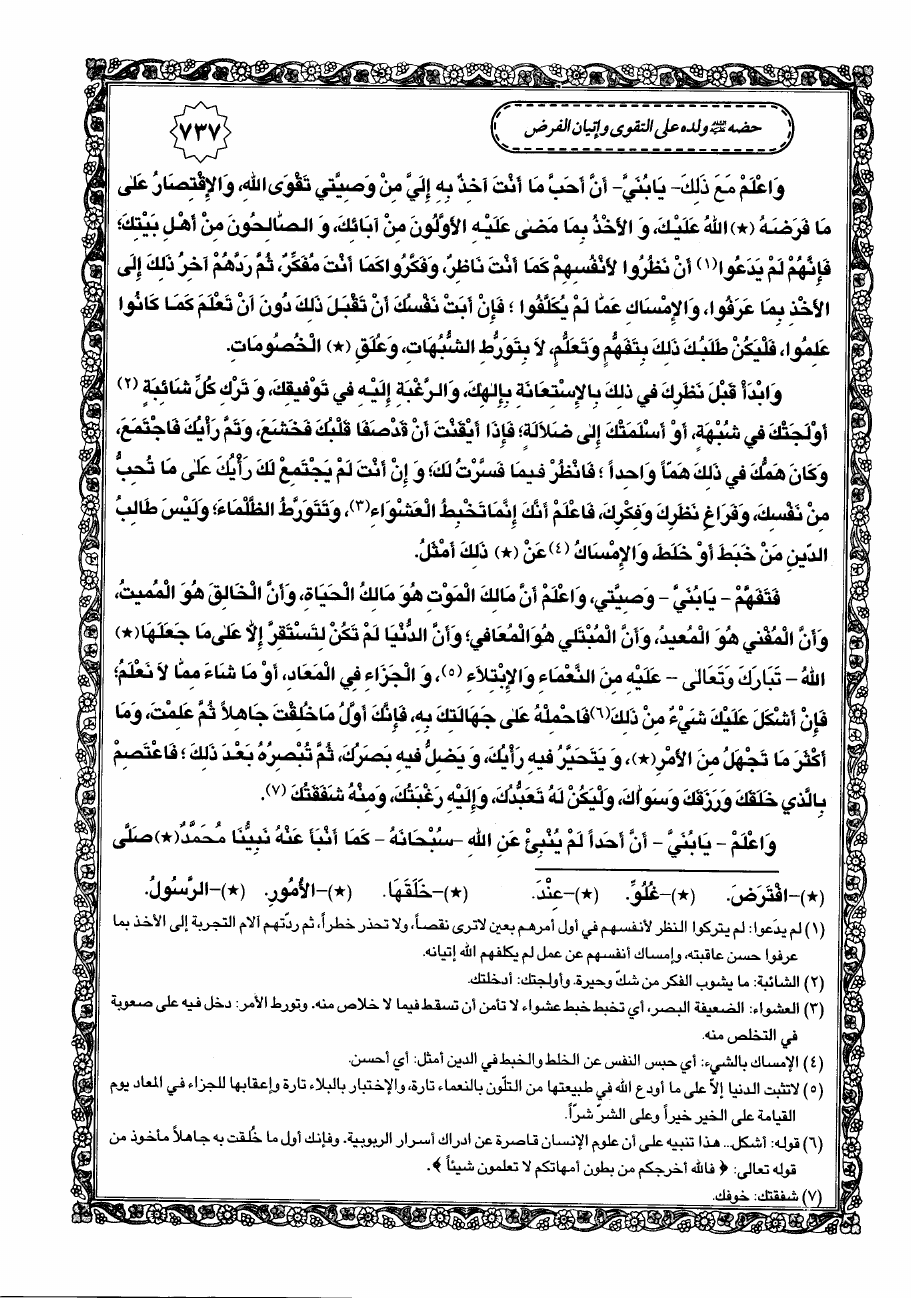 حضه ﷷ ولده على التقوى وإتيان الفرض
٧٣٧
وَاعْلَمْ مَعَ ذَلِكَ- يَابُنَيَّ- أَنَّ أَحَبَّ مَا أَنْتَ آخِذٌ بِهِ إِلَيَّ مِنْ وَصِيَّتي تَقْوَى اللهِ، وَالإِقْتِصَارُ عَلى
مَا فَرَضَهُ (★) اللهُ عَلَيْكَ، وَ الأَخْذُ بِمَا مَضى عَلَيْهِ الأَوَّلُونَ مِنْ آبَائِكَ، وَ الصَّالِحُونَ مِنْ أَهْلِ بَيْتِكَ؛
فَإِنَّهُمْ لَمْ يَدَعُوا(١) أَنْ نَظَرُوا لأَنْفُسِهِمْ كَمَا أَنْتَ نَاظِرٌ، وَفَكَّرُوا كَمَا أَنْتَ مُفَكِّرٌ، ثُمَّ رَدَّهُمْ آخِرُ ذَلِكَ إِلَى
الأَخْذِ بِمَا عَرَفُوا، وَالإِمْسَاكِ عَمَّا لَمْ يُكَلَّفُوا ؛ فَإِنْ أَبَتْ نَفْسُكَ أَنْ تَقْبَلَ ذَلِكَ دُونَ أَنْ تَعْلَمَ كَمَا كَانُوا
عَلِمُوا، فَلْيَكُنْ طَلَبُكَ ذَلِكَ بِتَفَهُّمٍ وَتَعَلُّمٍ، لاَ بِتَوَرُّطِ الشُّبُهَاتِ، وَعُلَقِ (★) الْخُصُومَاتِ.
وَابْدَأْ قَبْلَ نَظَرِكَ في ذلِكَ بِالإِسْتِعَانَةِ بِإِلهِكَ، وَالرَّغْبَةِ إِلَيْهِ في تَوْفيقِكَ، وَ تَرْكِ كُلِّ شَائِبَةٍ (٢)
أَوْلَجَتْكَ في شُبْهَةٍ، أَوْ أَسْلَمَتْكَ إِلى ضَلاَلَةٍ؛ فَإِذَا أَيْقَنْتَ أَنْ قَدْ صَفَا قَلْبُكَ فَخَشَعَ، وَتَمَّ رَأْيُكَ فَاجْتَمَعَ،
وَكَانَ هَمُّكَ في ذَلِكَ هَمّاً وَاحِداً ؛ فَانْظُرْ فيمَا فَسَّرْتُ لَكَ؛ وَ إِنْ أَنْتَ لَمْ يَجْتَمِعْ لَكَ رَأْيُكَ عَلى مَا تُحِبُّ
مِنْ نَفْسِكَ، وَفَرَاغِ نَظَرِكَ وَفِكْرِكَ، فَاعْلَمْ أَنَّكَ إِنَّمَا تَخْبِطُ الْعَشْوَاءَ(٣)، وَتَتَوَرَّطُ الظَّلْمَاءَ؛ وَلَيْسَ طَالِبُ
الدّينِ مَنْ خَبَطَ أَوْ خَلَطَ، وَالإِمْسَاكُ (٤) عَنْ (★) ذَلِكَ أَمْثَلُ.
فَتَفَهَّمْ - يَابُنَيَّ - وَصِيَّتي، وَاعْلَمْ أَنَّ مَالِكَ الْمَوْتِ هُوَ مَالِكُ الْحَيَاةِ، وَأَنَّ الْخَالِقَ هُوَ الْمُميتُ،
وَأَنَّ الْمُفْنِي هُوَ الْمُعيدُ، وَأَنَّ الْمُبْتَلي هُوَ الْمُعَافي؛ وَأَنَّ الدُّنْيَا لَمْ تَكُنْ لِتَسْتَقِرَّ إِلاَّ عَلَى مَا جَعَلَهَا(★)
اللهُ - تَبَارَكَ وَتَعَالى - عَلَيْهِ مِنَ النَّعْمَاءِ وَالإِبْتِلاَءِ (٥)، وَ الْجَزَاءِ فِي الْمَعَادِ، أَوْ مَا شَاءَ مِمَّا لاَ نَعْلَمُ؛
فَإِنْ أَشْكَلَ عَلَيْكَ شَيْءٌ مِنْ ذَلِكَ(٦) فَاحْمِلْهُ عَلى جَهَالَتِكَ بِهِ، فَإِنَّكَ أَوَّلُ مَا خُلِقْتَ جَاهِلاً ثُمَّ عَلِمْتَ، وَمَا
أَكْثَرَ مَا تَجْهَلُ مِنَ الأَمْرِ(★)، وَ يَتَحَيَّرُ فيهِ رَأْيُكَ، وَ يَضِلُّ فيهِ بَصَرُكَ، ثُمَّ تُبْصِرُهُ بَعْدَ ذَلِكَ ؛ فَاعْتَصِمْ
بِالَّذي خَلَقَكَ وَرَزَقَكَ وَسَوَّاكَ، وَلْيَكُنْ لَهُ تَعَبُّدُكَ، وَإِلَيْهِ رَغْبَتُكَ، وَمِنْهُ شَفَقَتُكَ (٧).
وَاعْلَمْ - يَابُنَيَّ - أَنَّ أَحَداً لَمْ يُنْبِئْ عَنِ اللهِ -سُبْحَانَهُ - كَمَا أَنْبَأَ عَنْهُ نَبِيُّنَا مُحَمَّدٌ(★) صَلَّى
(★)-افْتَرَضَ. (★)-غُلُوِّ. (★)-عِنْدَ. (★)-خَلَقَهَا. (★)-الأُمُورِ. (★)-الرَّسُولُ.
(١) لم يدَعوا: لم يتركوا النظر لأنفسهم في أول أمرهم بعين لاترى نقصاً، ولا تحذر خطراً، ثم ردّتهم آلام التجربة إلى الأخذ بما
عرفوا حسن عاقبته، وإمساك أنفسهم عن عمل لم يكلفهم الله إتيانه.
(٢) الشائبة: ما يشوب الفكر من شكّ وحيرة. وأولجتك: أدخلتك.
(٣) العشواء: الضعيفة البصر، أي تخبط خبط عشواء لا تأمن أن تسقط فيما لا خلاص منه. وتورط الأمر: دخل فيه على صعوبة
في التخلص منه.
(٤) الإمساك بالشيء: أي حبس النفس عن الخلط والخبط في الدين أمثل: أي أحسن.
(٥) لاتثبت الدنيا إلاّ على ما أودع الله في طبيعتها من التلّون بالنعماء تارة، والإختبار بالبلاء تارة وإعقابها للجزاء في المعاد يوم
القيامة على الخير خيراً وعلى الشرّ شرّاً.
(٦) قوله: أشكل.. هذا تنبيه على أن علوم الإنسان قاصرة عن ادراك أسرار الربوبية. وفإنك أول ما خُلقت به جاهلاً مأخوذ من
قوله تعالى: ﴿ فالله أخرجكم من بطون أمهاتكم لا تعلمون شيئاً ﴾.
(٧) شفقتك: خوفك.